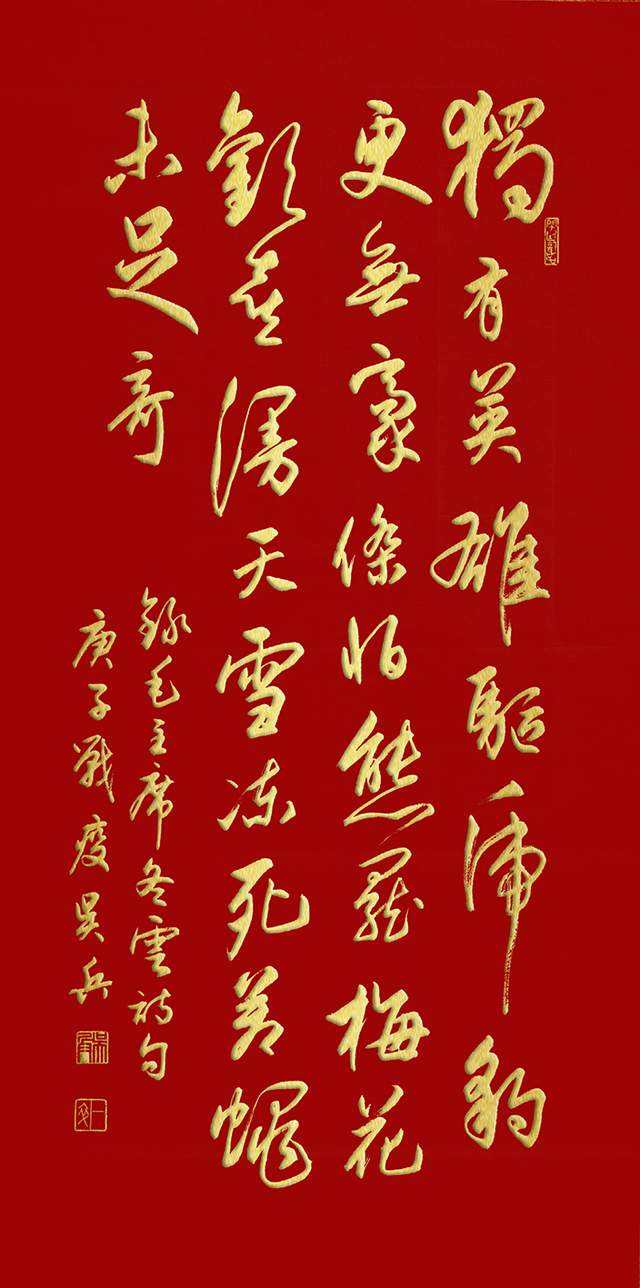 獨有英雄驅虎豹
更無豪傑怕熊羆梅花
歡喜漫天雪凍死蒼蠅
未足奇
錄毛主席冬雲詩句
庚子戰疫吳兵